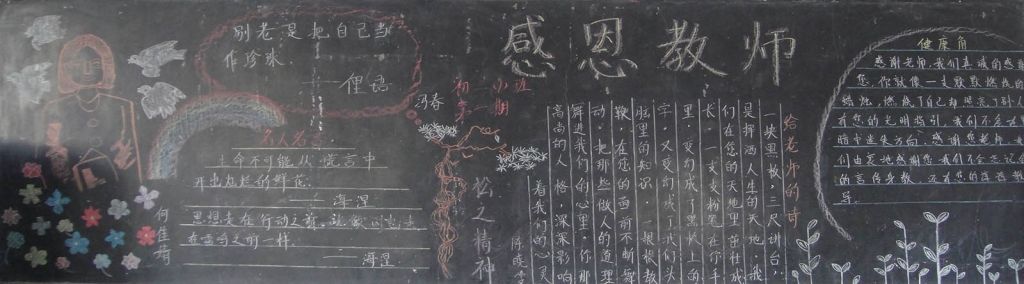 感恩教师
别老是把自己当
作珍珠
——俚语
名人名言
生命不可能从谎言中
开出灿烂的鲜花。
——海涅
思想走在行动之前，就像闪电走
在雷鸣之前一样。
——海涅
何佳瑶
冯春
松之精神
给老师的诗
一块黑板，三尺讲台，
是挥洒人生的天地，我
们在您的天地里茁壮成
长，一支支粉笔在你手
里，又变
字，又变幻成了我们头
脑里的知识，一根根教
鞭，在您的面前不断舞
动，把那些做人的道理
舞进我们的心里，你那
高尚的人格，深深影响
着我们的心灵
健康角
感谢老师，我们真诚的感谢
您，你就像一支默默燃烧的
蜡烛，燃烧了自己却照亮了别人
有您的光明指引，我们不会在黑
暗中迷失方向，感谢您老师，我
们由衷地感谢您，我们不会忘记您
的言传身教，
导。